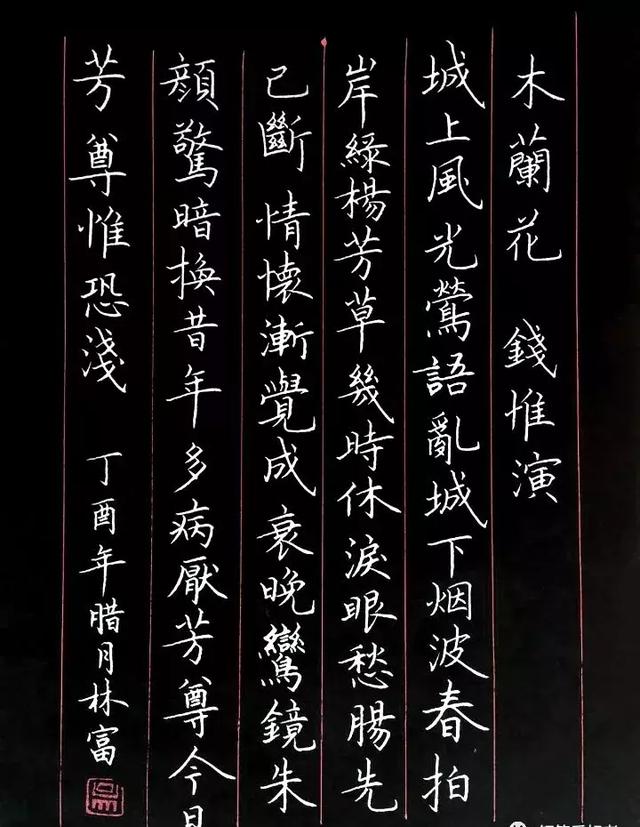 木蘭花 錢惟演
城上風光鶯語亂城下烟波春拍
岸綠楊芳草幾時休淚眼愁腸先
已斷 情懷漸覺成衰晚鸞鏡朱
顏驚暗換昔年多病厭芳尊今日
芳尊惟恐淺 丁酉年腊月林富